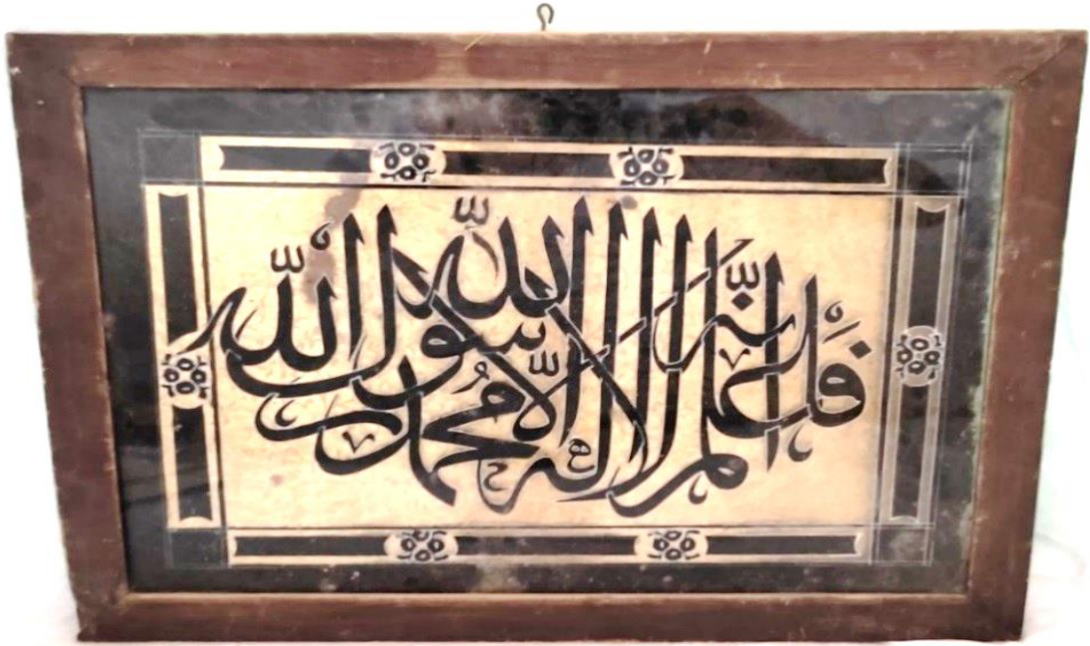 فاعلم انه لا اله الا الله محمد رسول الله